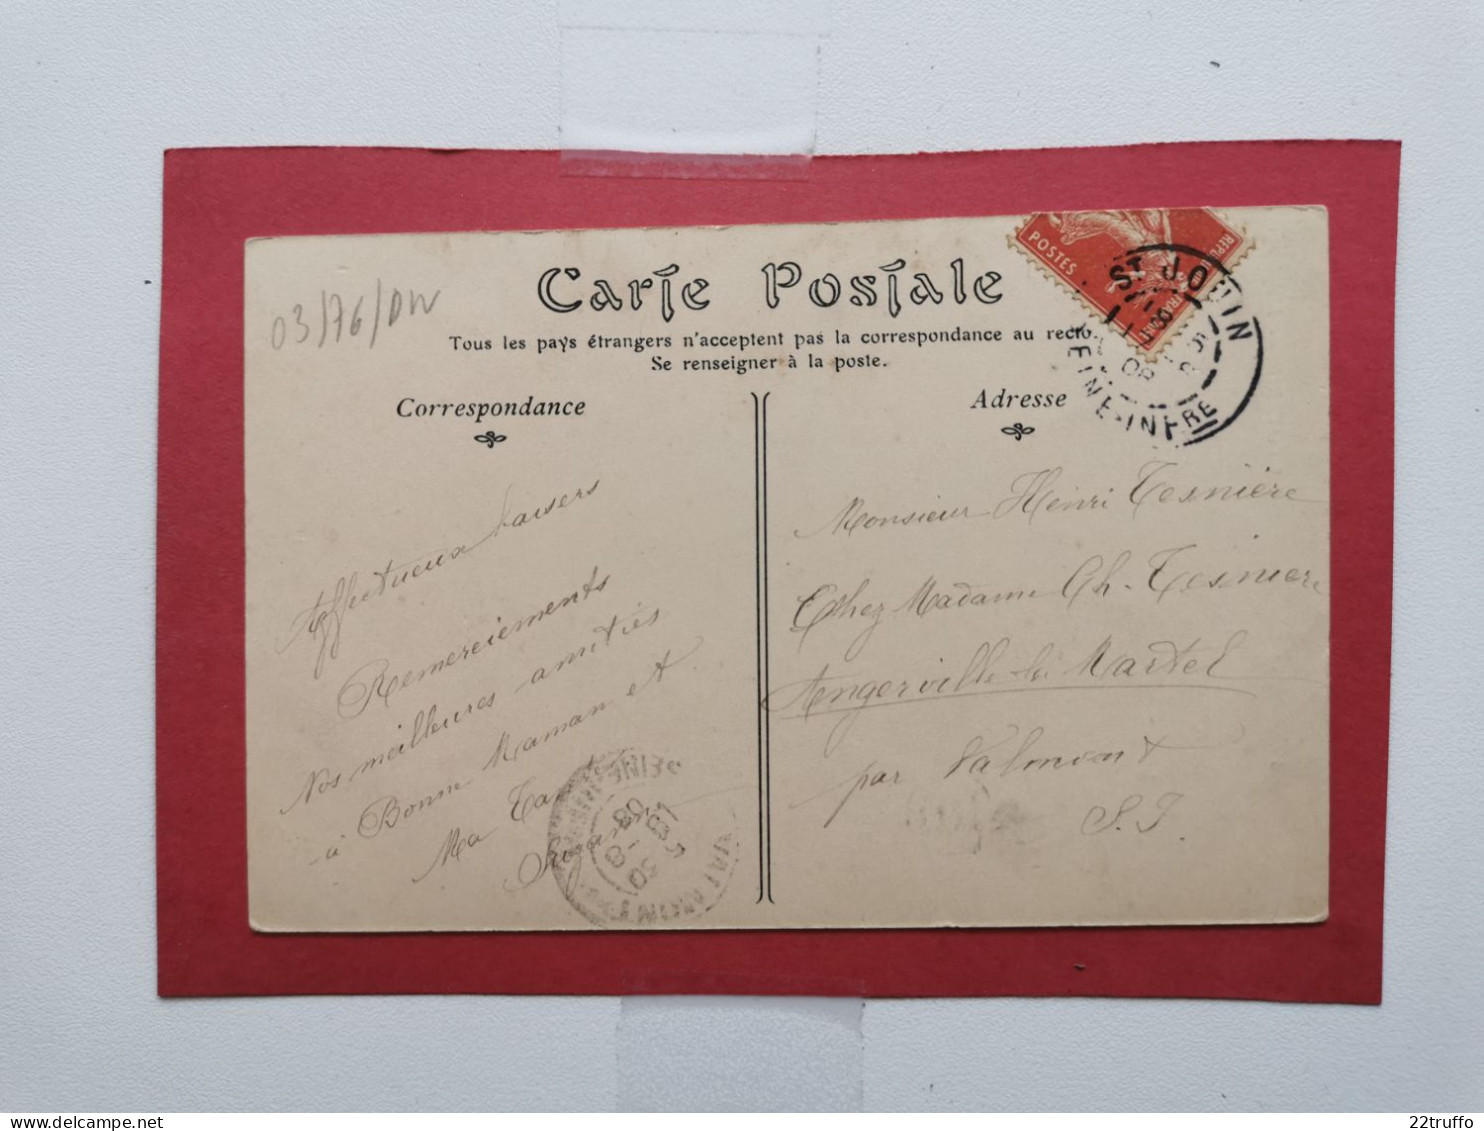 03/76/DW
Carte Postale
Tous les pays étrangers n'acceptent pas la correspondance au recto.
Se renseigner à la poste.
Correspondance
Adresse
POSTES
ST JOUIN
SEINE-INFRE
Affectueux baisers
Remerciements
Nos meilleures amitiés
à Bonne Maman et
Ma Tante
Monsieur Henri Tesnière
Chez Madame Ch. Tesnière
Angerville la Martel
par Valmont
S. I.
VALMONT
22truffo